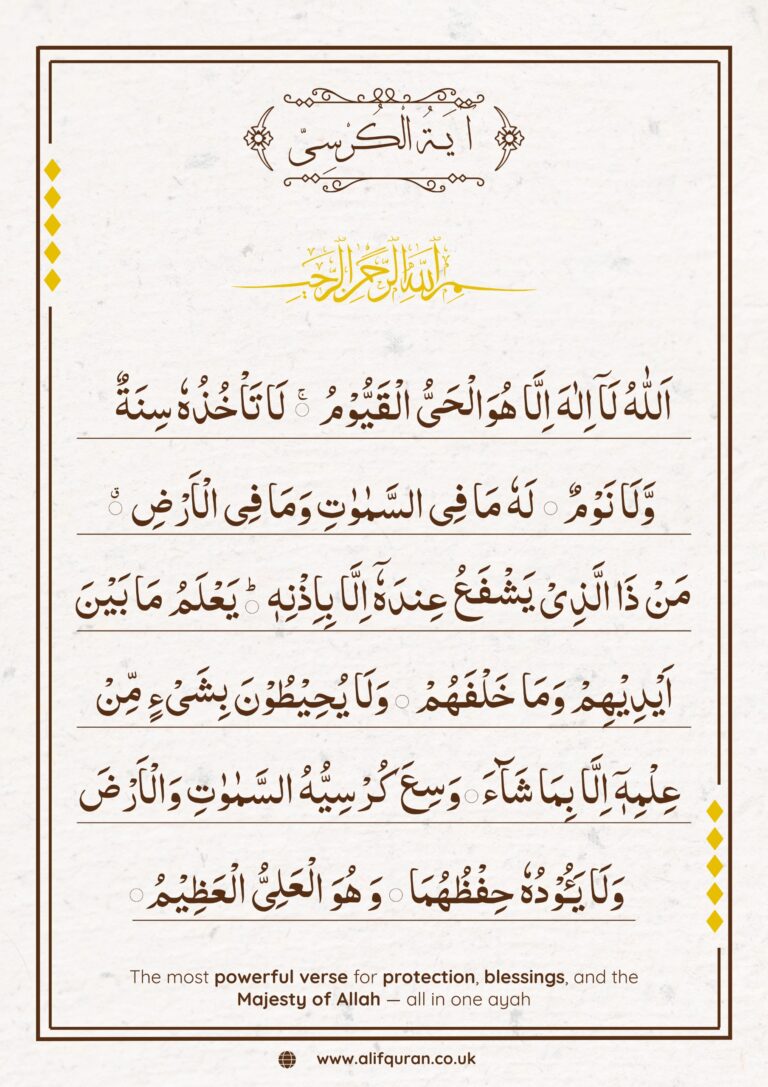 اٰيَةُ الْكُرْسِىّ
بِسْمِ اللّٰهِ الرَّحْمٰنِ الرَّحِيْمِ
اَللّٰهُ لَآ اِلٰهَ اِلَّا هُوَ الْحَىُّ الْقَيُّوْمُ ۚ لَا تَاْخُذُهٗ سِنَةٌ
وَّلَا نَوْمٌ ۝ لَهٗ مَا فِى السَّمٰوٰتِ وَمَا فِى الْاَرْضِ ۝ۗ
مَنْ ذَا الَّذِىْ يَشْفَعُ عِندَهٗٓ اِلَّا بِاِذْنِهٖ ؕ يَعْلَمُ مَا بَيْنَ
اَيْدِيْهِمْ وَمَا خَلْفَهُمْ ۝ وَلَا يُحِيْطُوْنَ بِشَىْءٍ مِّنْ
عِلْمِهٖٓ اِلَّا بِمَا شَآءَ ۝ وَسِعَ كُرْسِيُّهُ السَّمٰوٰتِ وَالْاَرْضَ
وَلَا يَـُٔوْدُهٗ حِفْظُهُمَا ۝ وَهُوَ الْعَلِىُّ الْعَظِيْمُ ۝
The most powerful verse for protection, blessings, and the
Majesty of Allah — all in one ayah
www.alifquran.co.uk